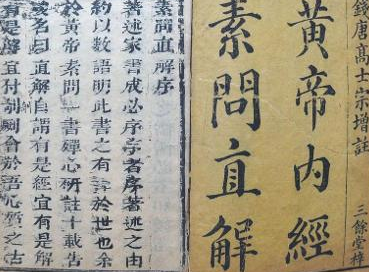 錢唐高士宗增註
三餘堂梓
黃帝內經
素問直解
素問直解序
著述家書成必序序者序著述之由
約以數語明此書之有裨於世也余
於黃帝素問一書殫心研註十載告
竣名曰直解自謂有是經宜有是解
有是解宜付剞劂會於吾心質之古